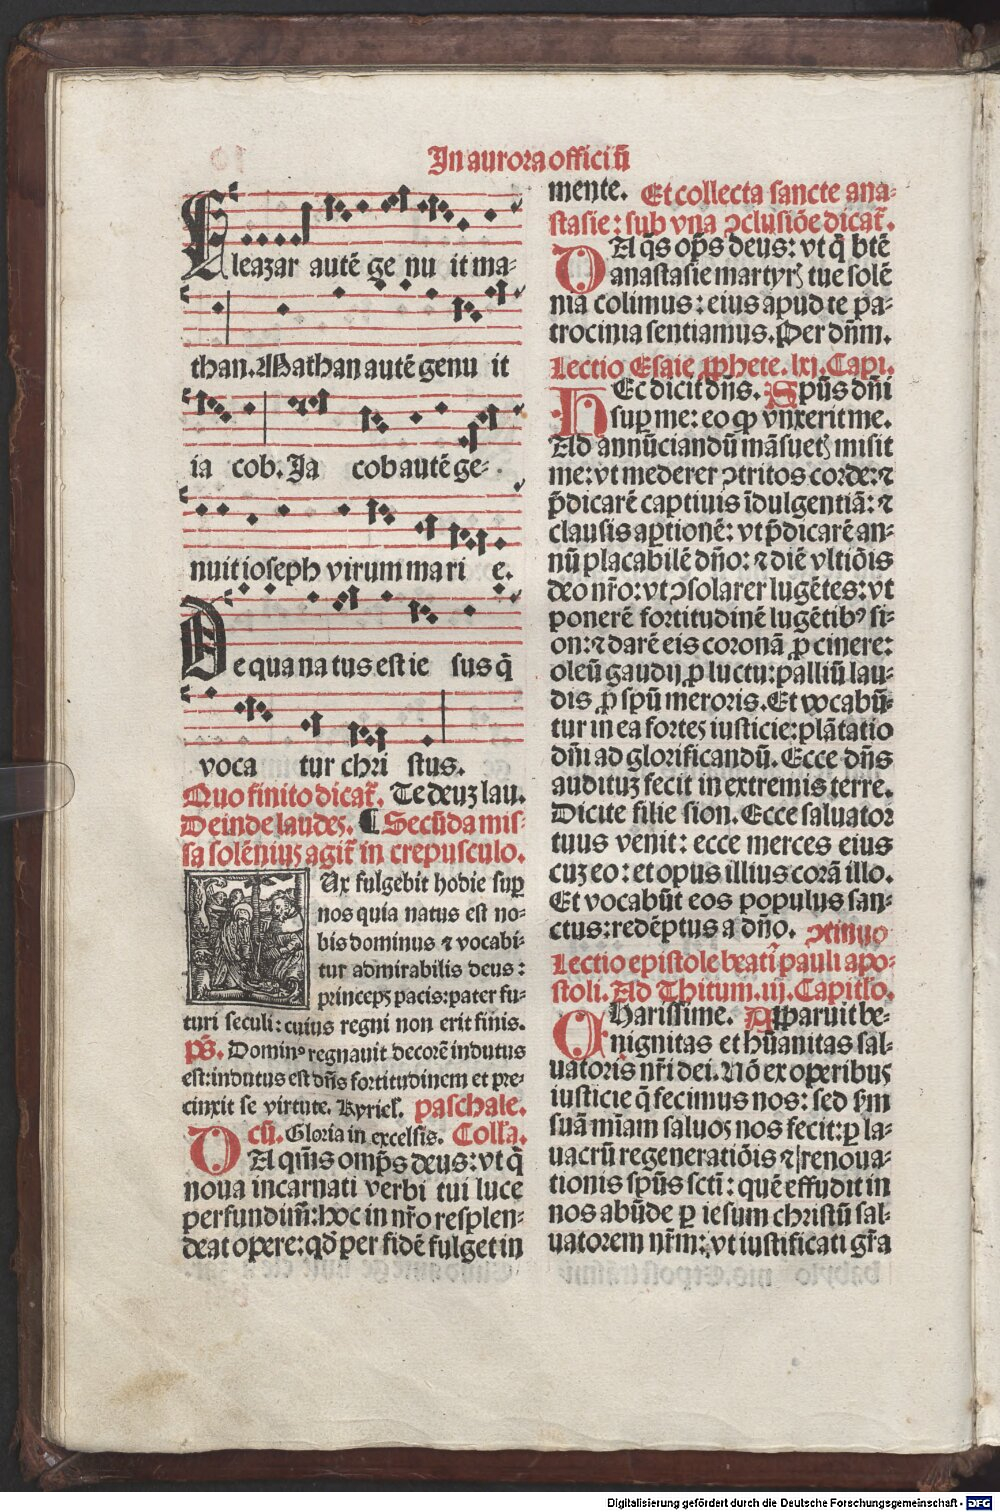 In aurora officiũ
Eleazar autẽ ge nu it ma⸗
than. Mathan autẽ genu it
ia cob. Ja cob autẽ ge⸗
nuit ioseph virum ma ri e.
De qua na tus est ie sus q̃
voca tur chri stus.
Quo finito dicať. Te deuꝫ lau.
Deinde laudeꝫ. ¶ Secũda mis⸗
sa solẽniuꝫ agiť in crepusculo.
LUx fulgebit hodie suꝑ
nos quia natus est no⸗
bis dominus ⁊ vocabi⸗
tur admirabilis deus:
princepꝫ pacis: pater fu⸗
turi seculi: cuius regni non erit finis.
p̃s. Dominꝰ regnauit decorẽ indutus
est: indutus est dñs fortitudinem et pre⸗
cinxit se virtute. Kyrieľ. paschale.
cũ. Gloria in excelsis. Coll'a.
DA qm̃s omp̃s deus: vt q̃
noua incarnati verbi tui luce
perfundim̃: hoc in nr̃o resplen⸗
deat opere: qđ per fidẽ fulget in
mente. Et collecta sancte ana⸗
stasie: sub vna ꝯclusiõe dicať.
DA q̃s op̃s deus: vt q̃ btẽ
anastasie martyrꝭ tue solẽ
nia colimus: eius apud te pa⸗
trocinia sentiamus. Per dñm.
Lectio Esaie ꝓphete. lxj. Capi.
HEc dicit dñs. Spũs dñi
suꝑ me: eo ꝙ vnxerit me.
Ad annũciandũ mãsuetꝭ misit
me: vt mederer ꝯtritos corde: ⁊
p̃dicarẽ captiuis ĩdulgentiã: ⁊
clausis aꝑtionẽ: vt p̃dicarẽ an⸗
nũ placabilẽ dño: ⁊ diẽ vltiõis
deo nr̃o: vt ꝯsolarer lugẽtes: vt
ponerẽ fortitudinẽ lugẽtibꝰ si⸗
on: ⁊ darẽ eis coronã ꝓ cinere:
oleũ gaudij ꝓ luctu: palliũ lau⸗
dis ꝓ spũ meroris. Et vocabũ⸗
tur in ea forteꝫ iusticie: plãtatio
dñi ad glorificandũ. Ecce dñs
audituꝫ fecit in extremis terre.
Dicite filie sion. Ecce saluator
tuus venit: ecce merces eius
cuꝫ eo: et opus illius corã illo.
Et vocabũt eos populus san⸗
ctus: redẽptus a dño. ꝯtinuo
Lectio epistole beati pauli apo⸗
stoli. Ad Thitum. iij. Capitľo.
CHarissime. Apparuit be⸗
nignitas et hũanitas sal⸗
uatoris nr̃i dei. Nõ ex operibuꝫ
iusticie q̃ fecimus nos: sed sm̃
suã miam saluoꝫ nos fecit: ꝑ la⸗
uacrũ regeneratiõis ⁊ renoua⸗
tionis spũs scti: quẽ effudit in
nos abũde ꝑ iesum christũ sal⸗
uatorem nr̃m: vt iustificati gr̃a
Digitalisierung gefördert durch die Deutsche Forschungsgemeinschaft - DFG